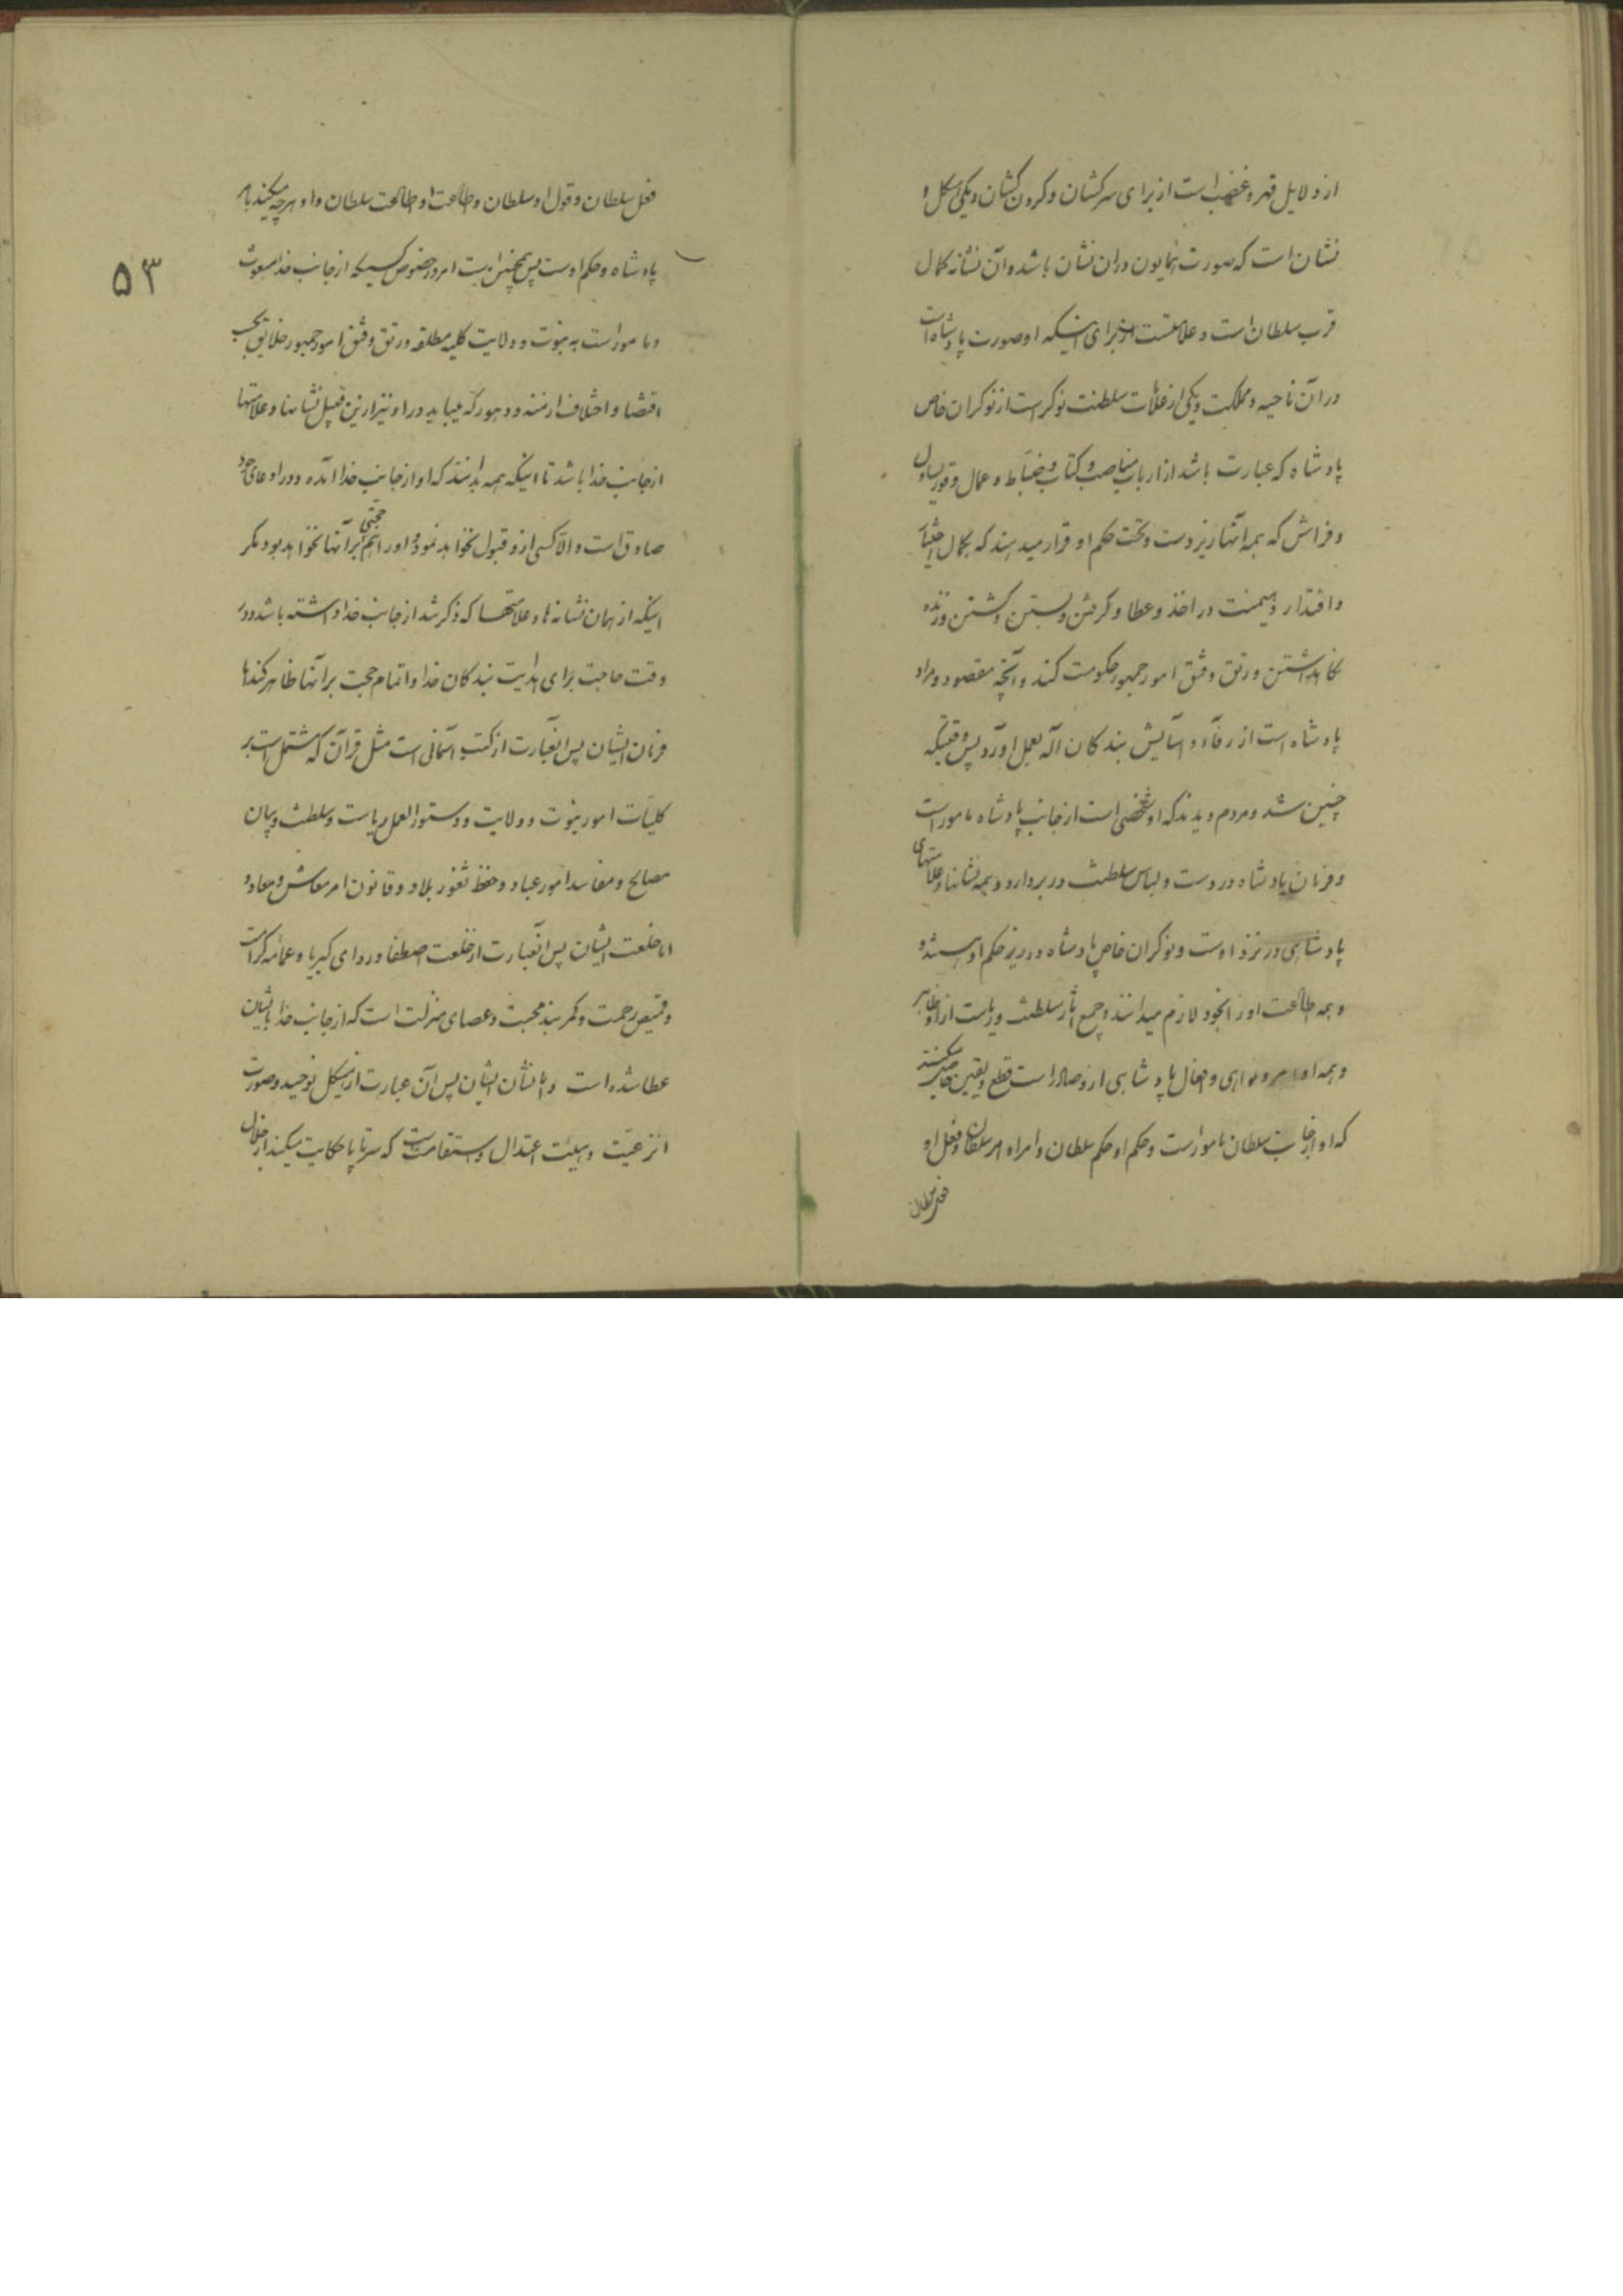 از دلایل قهر و غضب است از برای سرکشان و کردن کشان و یکی شکل و
نشان است که صورت همایون دران نشان باشد و آن نشانه کمال
قرب سلطان است و علامتست از برای اینکه او صورت پادشاه است
در آن ناحیه و مملکت و یکی از علامات سلطنت نوکر است از نوکران خاص
پادشاه که عبارت باشد از ارباب مناصب و کتاب و ضباط و عمال و قور یساول
و فراش که همه آنها زیر دست و تحت حکم او قرار میدهند که بکمال
و اقتدار و هیمنت در اخذ و عطا و کرفتن و بستن و کشتن و زنده
نکاهداشتن و رتق و فتق امور جمهور حکومت کند و آنچه مقصود و مراد
پادشاه است از رفاه و آسایش بندکان اله بعمل اورد پس وقتیکه
چنین شد و مردم دیدند که او شخصی است از جانب پادشاه مامور است
و فرمان پادشاه در دست و لباس سلطنت در بر دارد و همه نشانها و علامتهای
پادشاهی در نزد اوست و نوکران خاص پادشاه در زیر حکم او هستند و
و همه اطاعت او را بخود لازم میدانند و جمیع اثار سلطنت و ریاست از او ظاهر
و همه اوامر و نواهی و افعال پادشاهی ازو صادر است قطع و یقین حاصل میکنند
که او از جانب سلطان مامور است و حکم او حکم سلطان و امر او امر سلطان و فعل او
فعل سلطان
۵۳
فعل سلطان و قول او سلطان و طاعت او طاعت سلطان و او هر چه میکند بامر
پادشاه و حکم اوست پس همچنین است امر در خصوص کسیکه از جانب خدا مبعوث
و مامور است به نبوت و ولایت کلیه مطلقه و رتق و فتق امور جمهور خلایق بحسب
اقتضا و اختلاف ازمنه و دهور که میباید در او نیز ازین قبیل نشانها و علامتها
از جانب خدا باشد تا اینکه همه بدانند که او از جانب خدا آمده و در ادعای خود
صادق است و الا کسی ازو قبول نخواهد نمود و او را هم حجتی بر آنها نخواهد بود مکر
اینکه از همان نشانه ها و علامتها که ذکر شد از جانب خدا داشته باشد و در
وقت حاجت برای هدایت بندکان خدا و اتمام حجت بر آنها ظاهر کند اما
فرمان ایشان پس آنعبارت از کتب آسمانی است مثل قرآن که مشتمل است بر
کلیات امور نبوت و ولایت و دستور العمل ریاست و سلطنت و بیان
مصالح و مفاسد امور عباد و حفظ ثغور بلاد و قانون امر معاش و معاد و
اما خلعت ایشان پس آنعبارت از خلعت اصطفا و ردای کبریا و عمامه کرامت
و قمیص رحمت و کمربند محبت و عصای منزلت است که از جانب خدا بایشان
عطا شده است و اما نشان ایشان پس آن عبارت از هیکل توحید و صورت
انزعیت و هیئت اعتدال و استقامت است که سر تا پا حکایت میکند از جلال